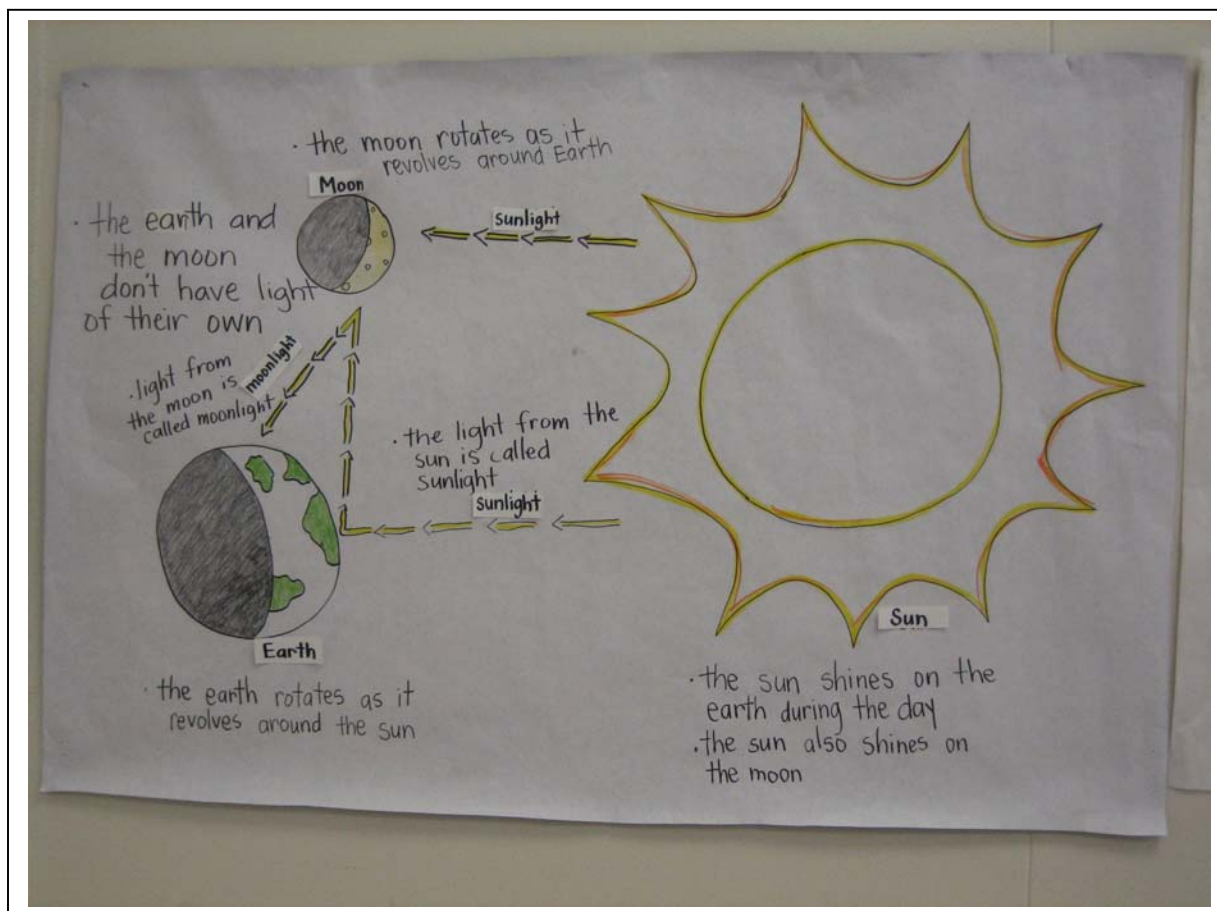 · the moon rotates as it
revolves around Earth
Moon
sunlight
· the earth and
the moon
don't have light
of their own
moonlight
· light from
the moon is
called moonlight
· the light from the
sun is called
sunlight
sunlight
Earth
· the earth rotates as it
revolves around the sun
Sun
· the sun shines on the
earth during the day
· the sun also shines on
the moon